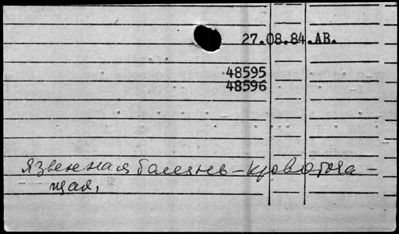 27.08.84.АВ.
48595
48596
язвенная болезнь - кровоточа-
щая,